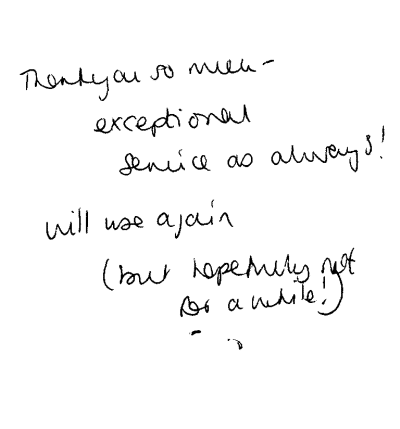 Thankyou so much -
exceptional
service as always!
will use again
(but hopefully not
for a while!)